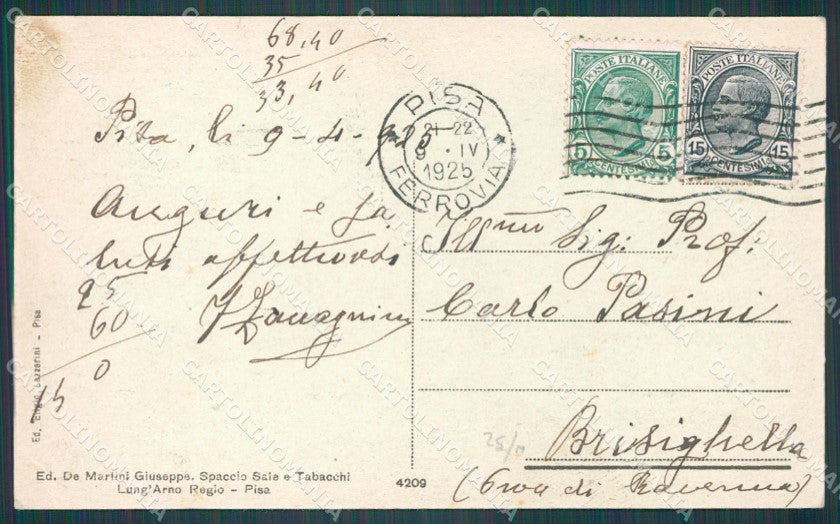 68,40
35
33,40
Pisa, li 9-4-925
Auguri e sa
luti affettuosi
25
60
0
15
PISA
21-22
9 · IV
1925
FERROVIA
POSTE ITALIANE
5 5
CENTESIMI
POSTE ITALIANE
15 15
CENTESIMI
Ill.mo Sig: Prof:
Carlo Pasini
Brisighella
(Prov di Ravenna)
25/
Ed. Lazzarini - Pisa
Ed. De Martini Giuseppe. Spaccio Sale e Tabacchi
Lung'Arno Regio - Pisa
4209
CARTOLINOMANIA